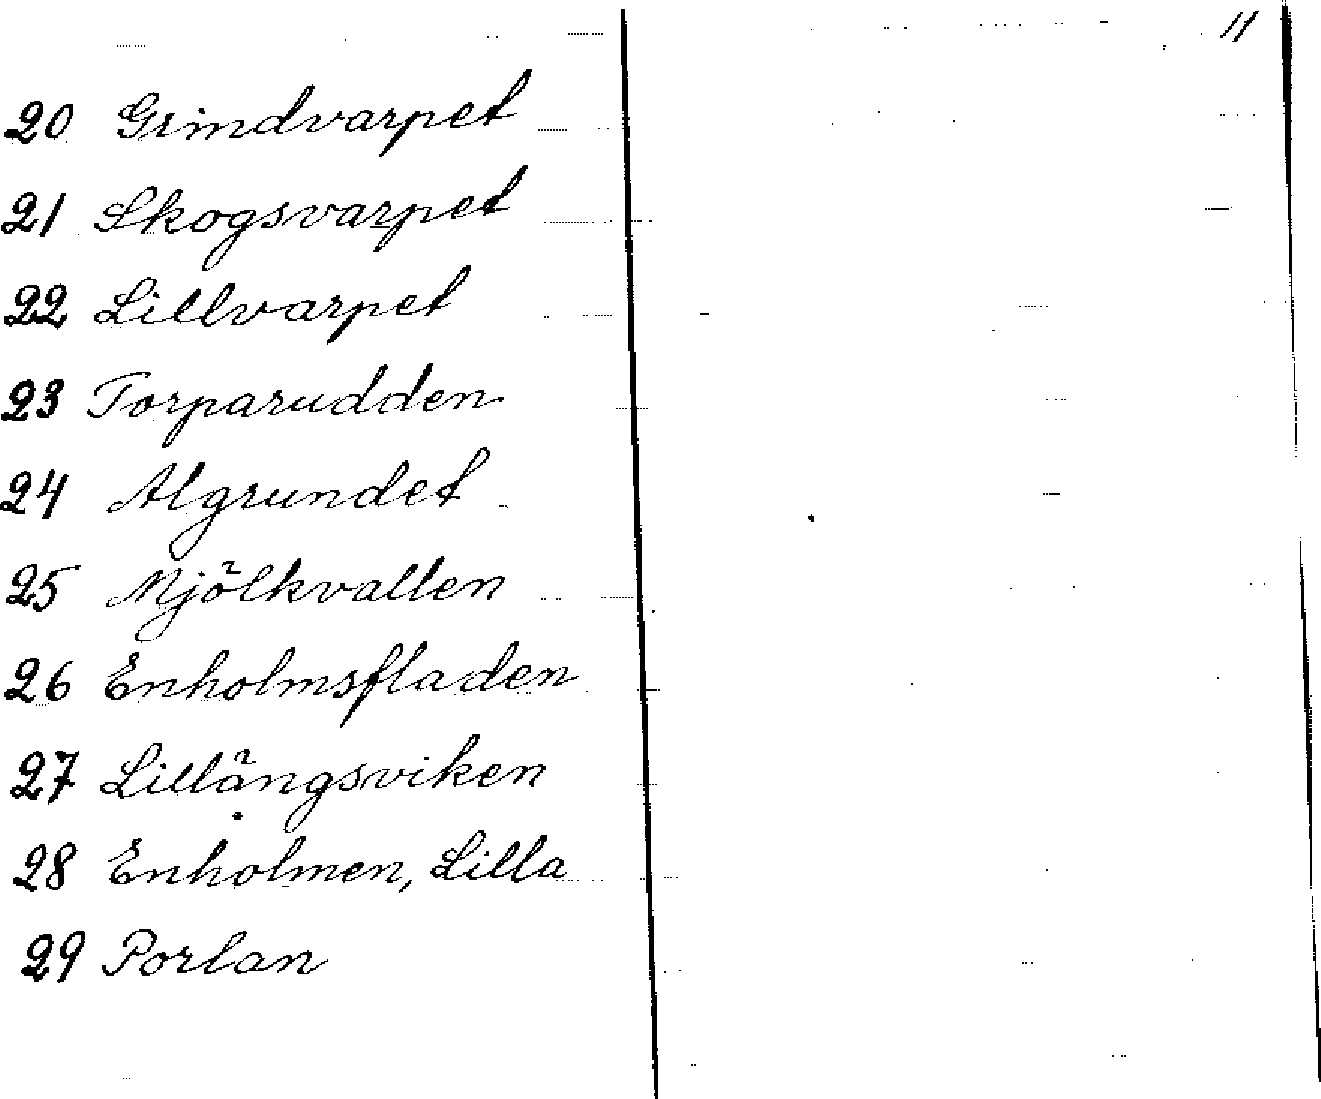 11
20 Grindvarpet
21 Skogsvarpet
22 Lillvarpet
23 Torparudden
24 Algrundet
25 Mjölkvallen
26 Enholmsfladen
27 Lillängsviken
28 Enholmen, Lilla
29 Porlan